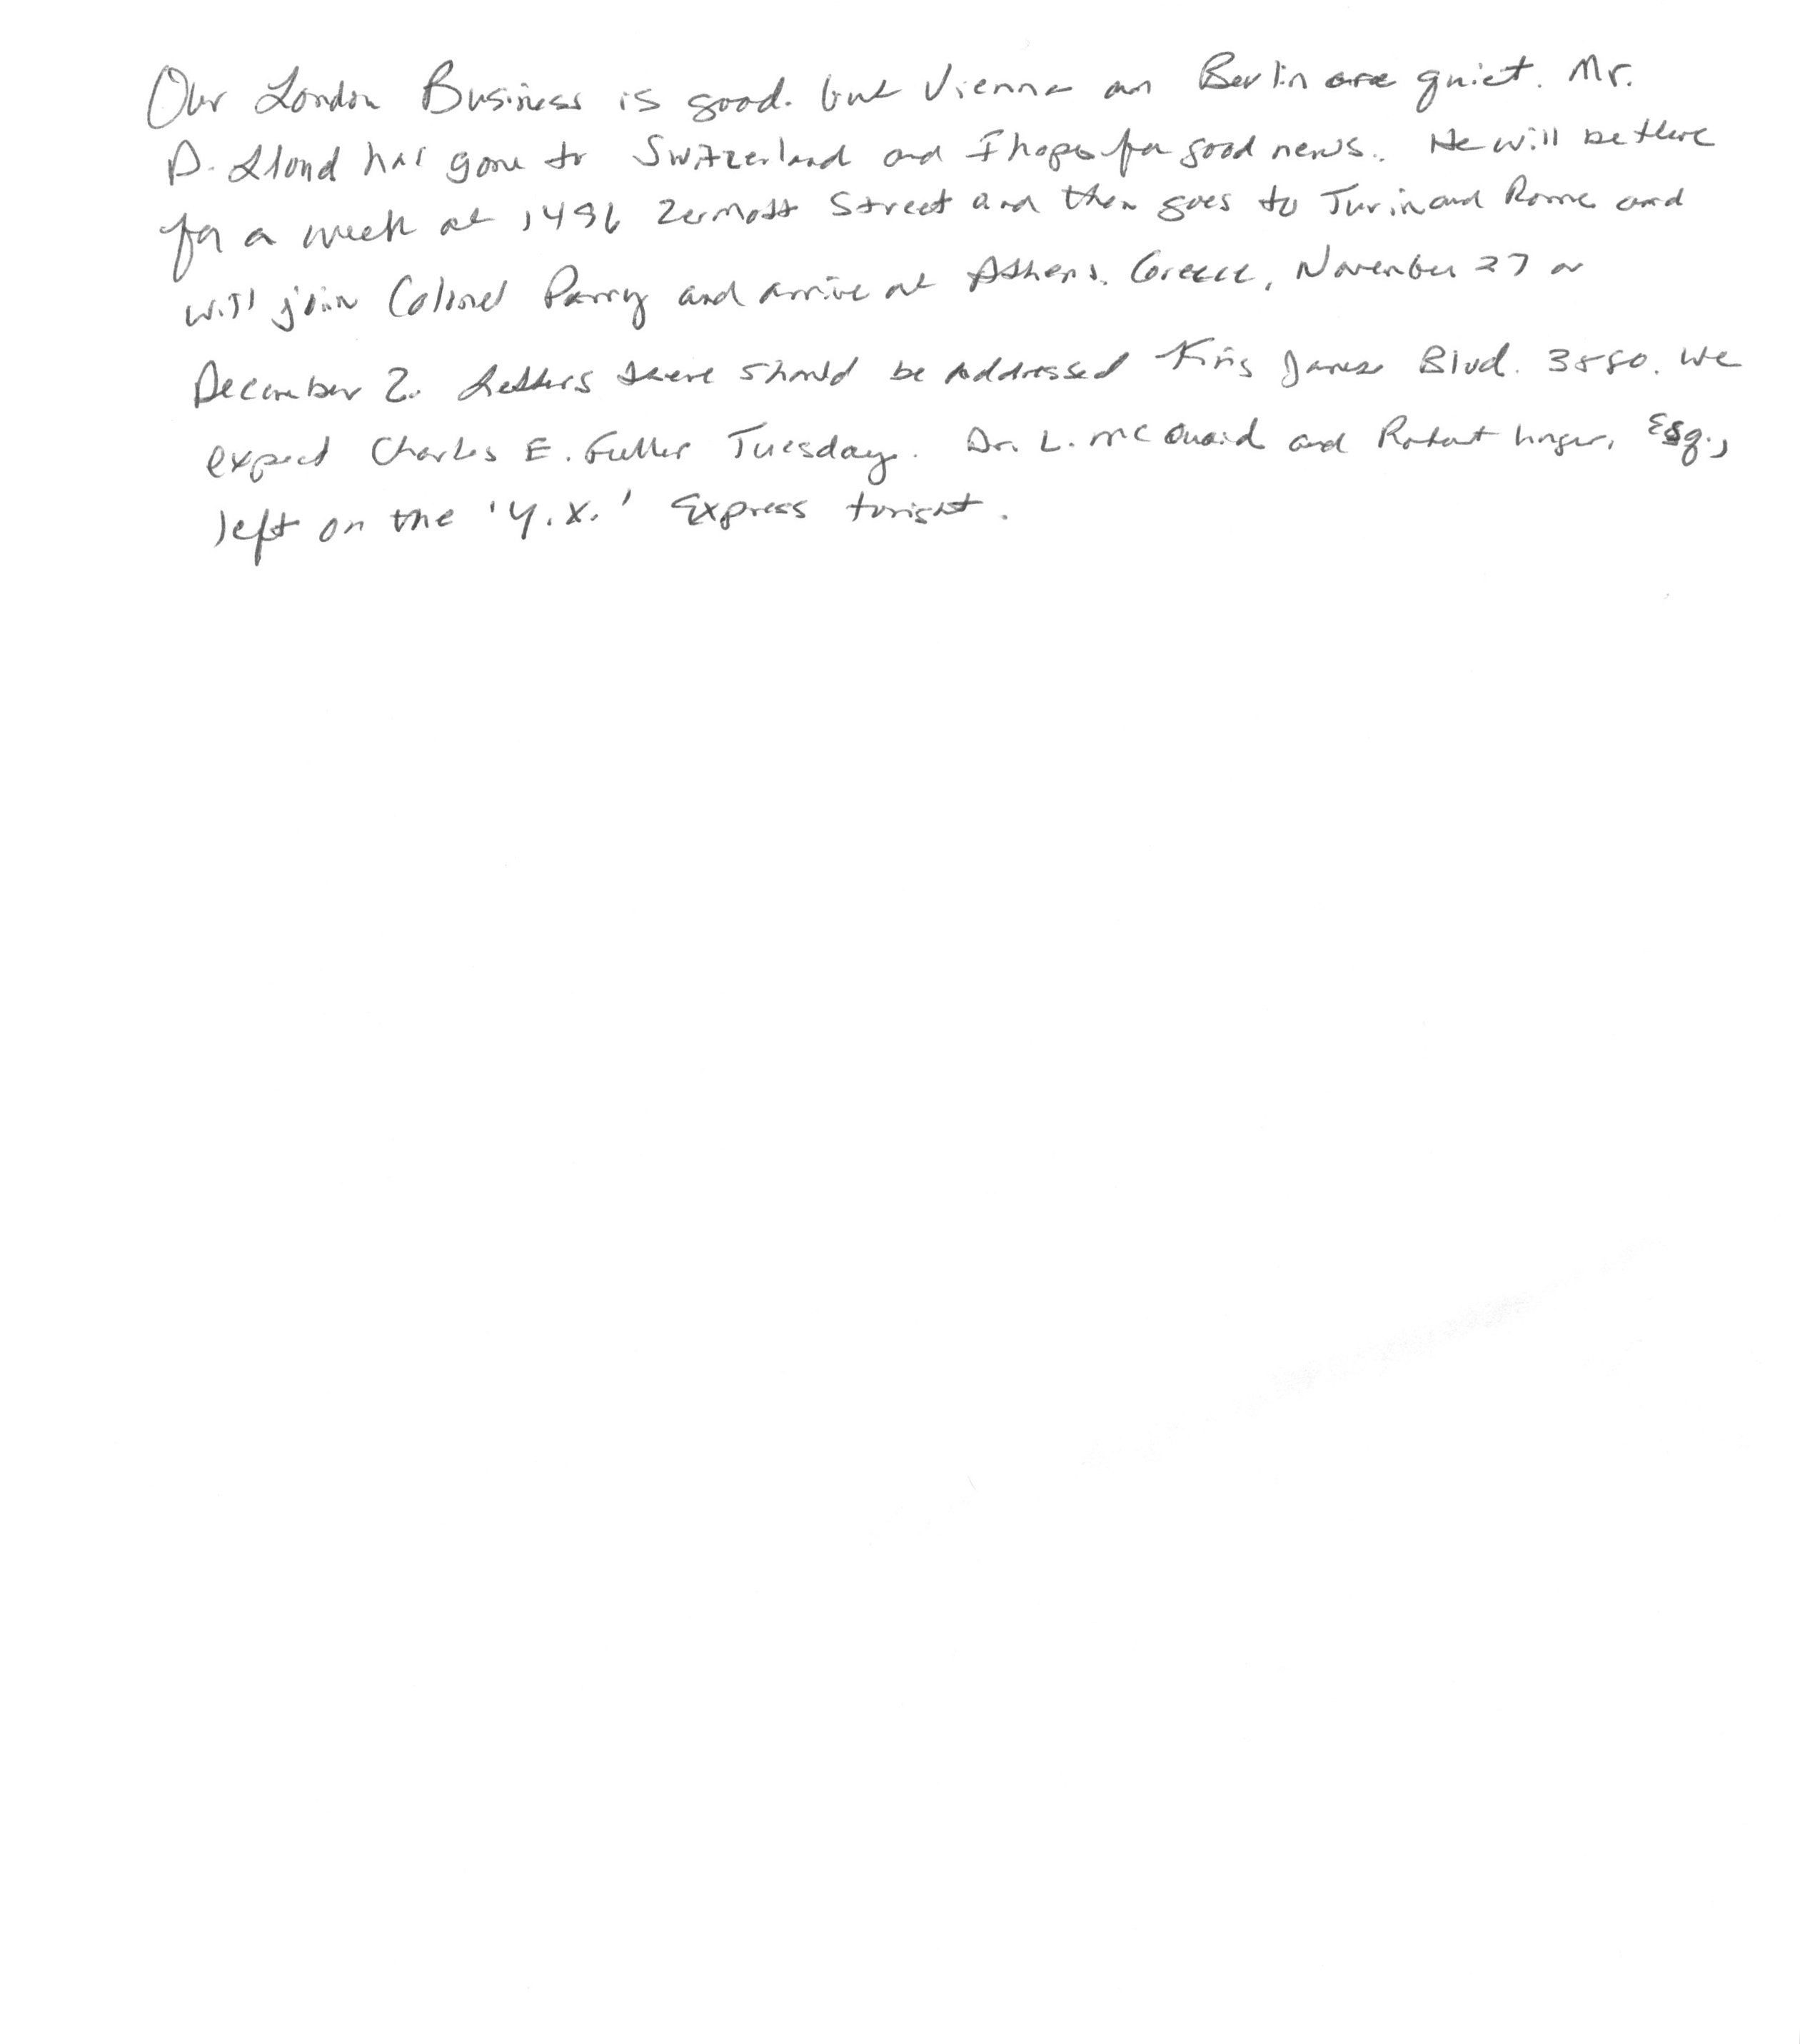 Our London Business is good. but Vienna an Berlin are quiet. Mr.
D. Llond has gone to Switzerland and I hope for good news.. He will be there
for a week at 1496 Zermott Street and then goes to Turin and Rome and
will join Colonel Parry and arrive at Athens, Greece, November 27 or
December 2. Letters there should be addressed King James Blvd. 3580. We
expect Charles E. Fuller Tuesday. Dr. L. McQuaid and Robert Unger, Esq.,
left on the 'Y.X.' Express tonight.